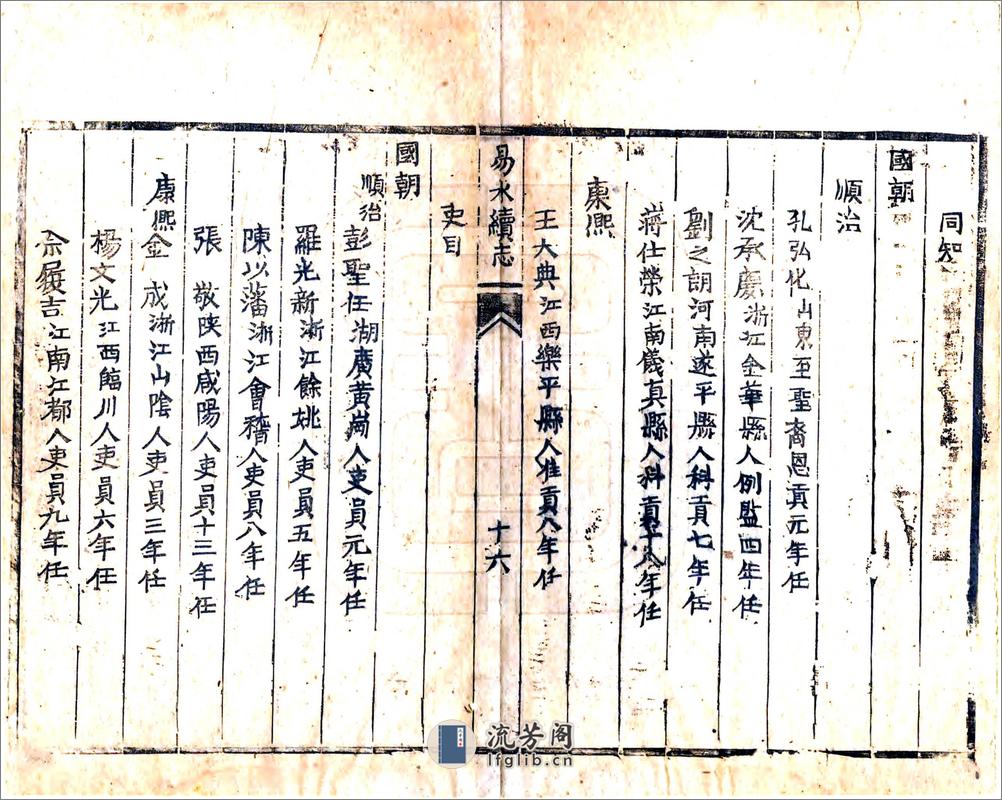 同知
國朝
順治
孔弘化山東至聖裔恩貢元年任
沈承慶浙江金華縣人例監四年任
劉之詗河南遂平縣人科貢七年任
蔣仕榮江南儀真縣人科貢十八年任
康熙
王大典江西樂平縣人准貢八年任
易水續志
十六
吏目
國朝
順治彭聖任湖廣黃崗人吏員元年任
羅光新浙江餘姚人吏員五年任
陳以藩浙江會稽人吏員八年任
張 敬陝西咸陽人吏員十三年任
康熙金 成浙江山陰人吏員三年任
楊文光江西臨川人吏員六年任
佘履吉江南江都人吏員九年任
流芳阁
lfglib.cn